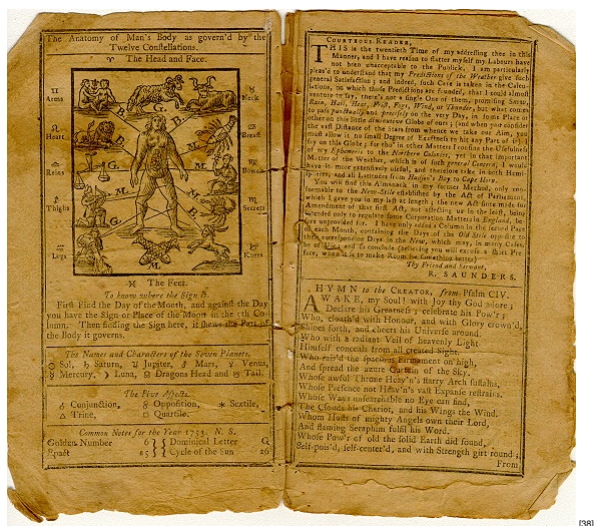 The Anatomy of Man's Body as govern'd by the
Twelve Constellations.
♈ The Head and Face.
♊
Arms
♉
Neck
♌
Heart
♋
Breast
♎
Reins
♍
Bowels
♐
Thighs
♏
Secrets
♒
Legs
♑
Knees
B.
G.
B.
B.
B.
G.
M.
M.
B.
M.
G.
M.
♓ The Feet.
To know where the Sign is.
First Find the Day of the Month, and against the Day
you have the Sign or Place of the Moon in the 5th Co-
lumn. Then finding the Sign here, it shews the Part of
the Body it governs.
The Names and Characters of the Seven Planets.
☉ Sol, ♄ Saturn, ♃ Jupiter, ♂ Mars, ♀ Venus,
☿ Mercury, ☽ Luna, ☊ Dragons Head and ☋ Tail.
The Five Aspects.
☌ Conjunction, ☍ Opposition, ⚹ Sextile,
△ Trine, □ Quartile.
Common Notes for the Year 1753. N. S.
Golden Number 6 } { Dominical Letter G
Epact 25 } { Cycle of the Sun 26
COURTEOUS READER,
THIS is the twentieth Time of my addressing thee in this
Manner, and I have reason to flatter myself my Labours have
not been unacceptable to the Publick. I am particularly
pleas'd to understand that my Predictions of the Weather give such
general Satisfaction; and indeed, such Care is taken in the Calcu-
lations, on which those Predictions are founded, that I could almost
venture to say, there's not a single One of them, promising Snow,
Rain, Hail, Heat, Frost, Fogs, Wind, or Thunder, but what comes
to pass punctually and precisely on the very Day, in some Place or
other on this little diminutive Globe of ours; (and when you consider
the vast Distance of the Stars from whence we take our Aim, you
must allow it no small Degree of Exactness to hit any Part of it) I
say on this Globe; for tho' in other Matters I confine the Usefulness
of my Ephemeris to the Northern Colonies, yet in that important
Matter of the Weather, which is of such general Concern, I would
have it more extensively useful, and therefore take in both Hemi-
spheres, and all Latitudes from Hudson's Bay to Cape Horn.
You will find this Almanack in my former Method, only con-
formable to the New-Stile established by the Act of Parliament,
which I gave you in my last at length; the new Act since made for
Amendment of that first Act, not affecting us in the least, being
intended only to regulate some Corporation Matters in England, be-
fore unprovided for. I have only added a Column in the second Page
of each Month, containing the Days of the Old Stile opposite to
their corresponding Days in the New, which may, in many Cases,
be of Use; and so conclude (believing you will excuse a short Pre-
face, when it is to make Room for something better)
Thy Friend and Servant,
R. SAUNDERS.
HYMN to the CREATOR, from Psalm CIV.
AWAKE, my Soul! with Joy thy God adore;
Declare his Greatness; celebrate his Pow'r;
Who, cloath'd with Honour, and with Glory crown'd,
Shines forth, and cheers his Universe around.
Who with a radiant Veil of heavenly Light
Himself conceals from all created Sight.
Who rais'd the spacious Firmament on high,
And spread the azure Curtain of the Sky,
Whose awful Throne Heav'n's starry Arch sustains,
Whose Presence not Heav'n's vast Expanse restrains.
Whose Ways unsearchable no Eye can find,
The Clouds his Chariot, and his Wings the Wind.
Whom Hosts of mighty Angels own their Lord,
And flaming Seraphim fulfil his Word.
Whose Pow'r of old the solid Earth did found,
Self-pois'd, self-center'd, and with Strength girt round;
From
[38]